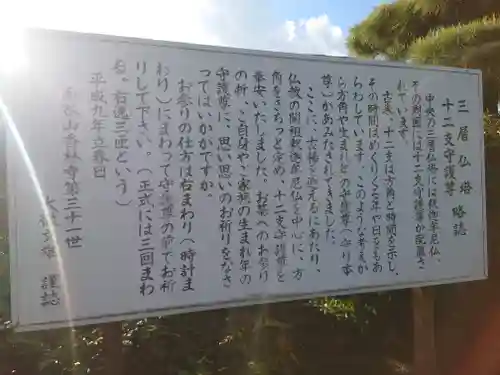 三層仏塔
十二支守護尊 略誌
中央の三層仏塔には釈迦牟尼仏、
その周囲には十二支守護尊が配置さ
れています。
古来、十二支は方角と時間を示し、
その時間はめぐりくる年や日をもあ
らわしています。このような考えか
ら方角や生まれどしの守護尊（守り本
尊）があみだされてきました。
ここに、大幅を迎えるにあたり、
仏教の開祖釈迦牟尼仏を中心に、方
角をきちっと定め、十二支守護尊を
奉安いたしました。お墓へのお参り
の折、ご自身やご家族の生まれ年の
守護尊に、思い思いのお祈りをなさ
ってはいかがですか。
お参りの仕方は右まわり（時計ま
わり）にまわって守護尊の前でお祈
りして下さい。（正式には三回まわ
る。右遶三匝という）
平成九年立春日
第三十一世
謹誌